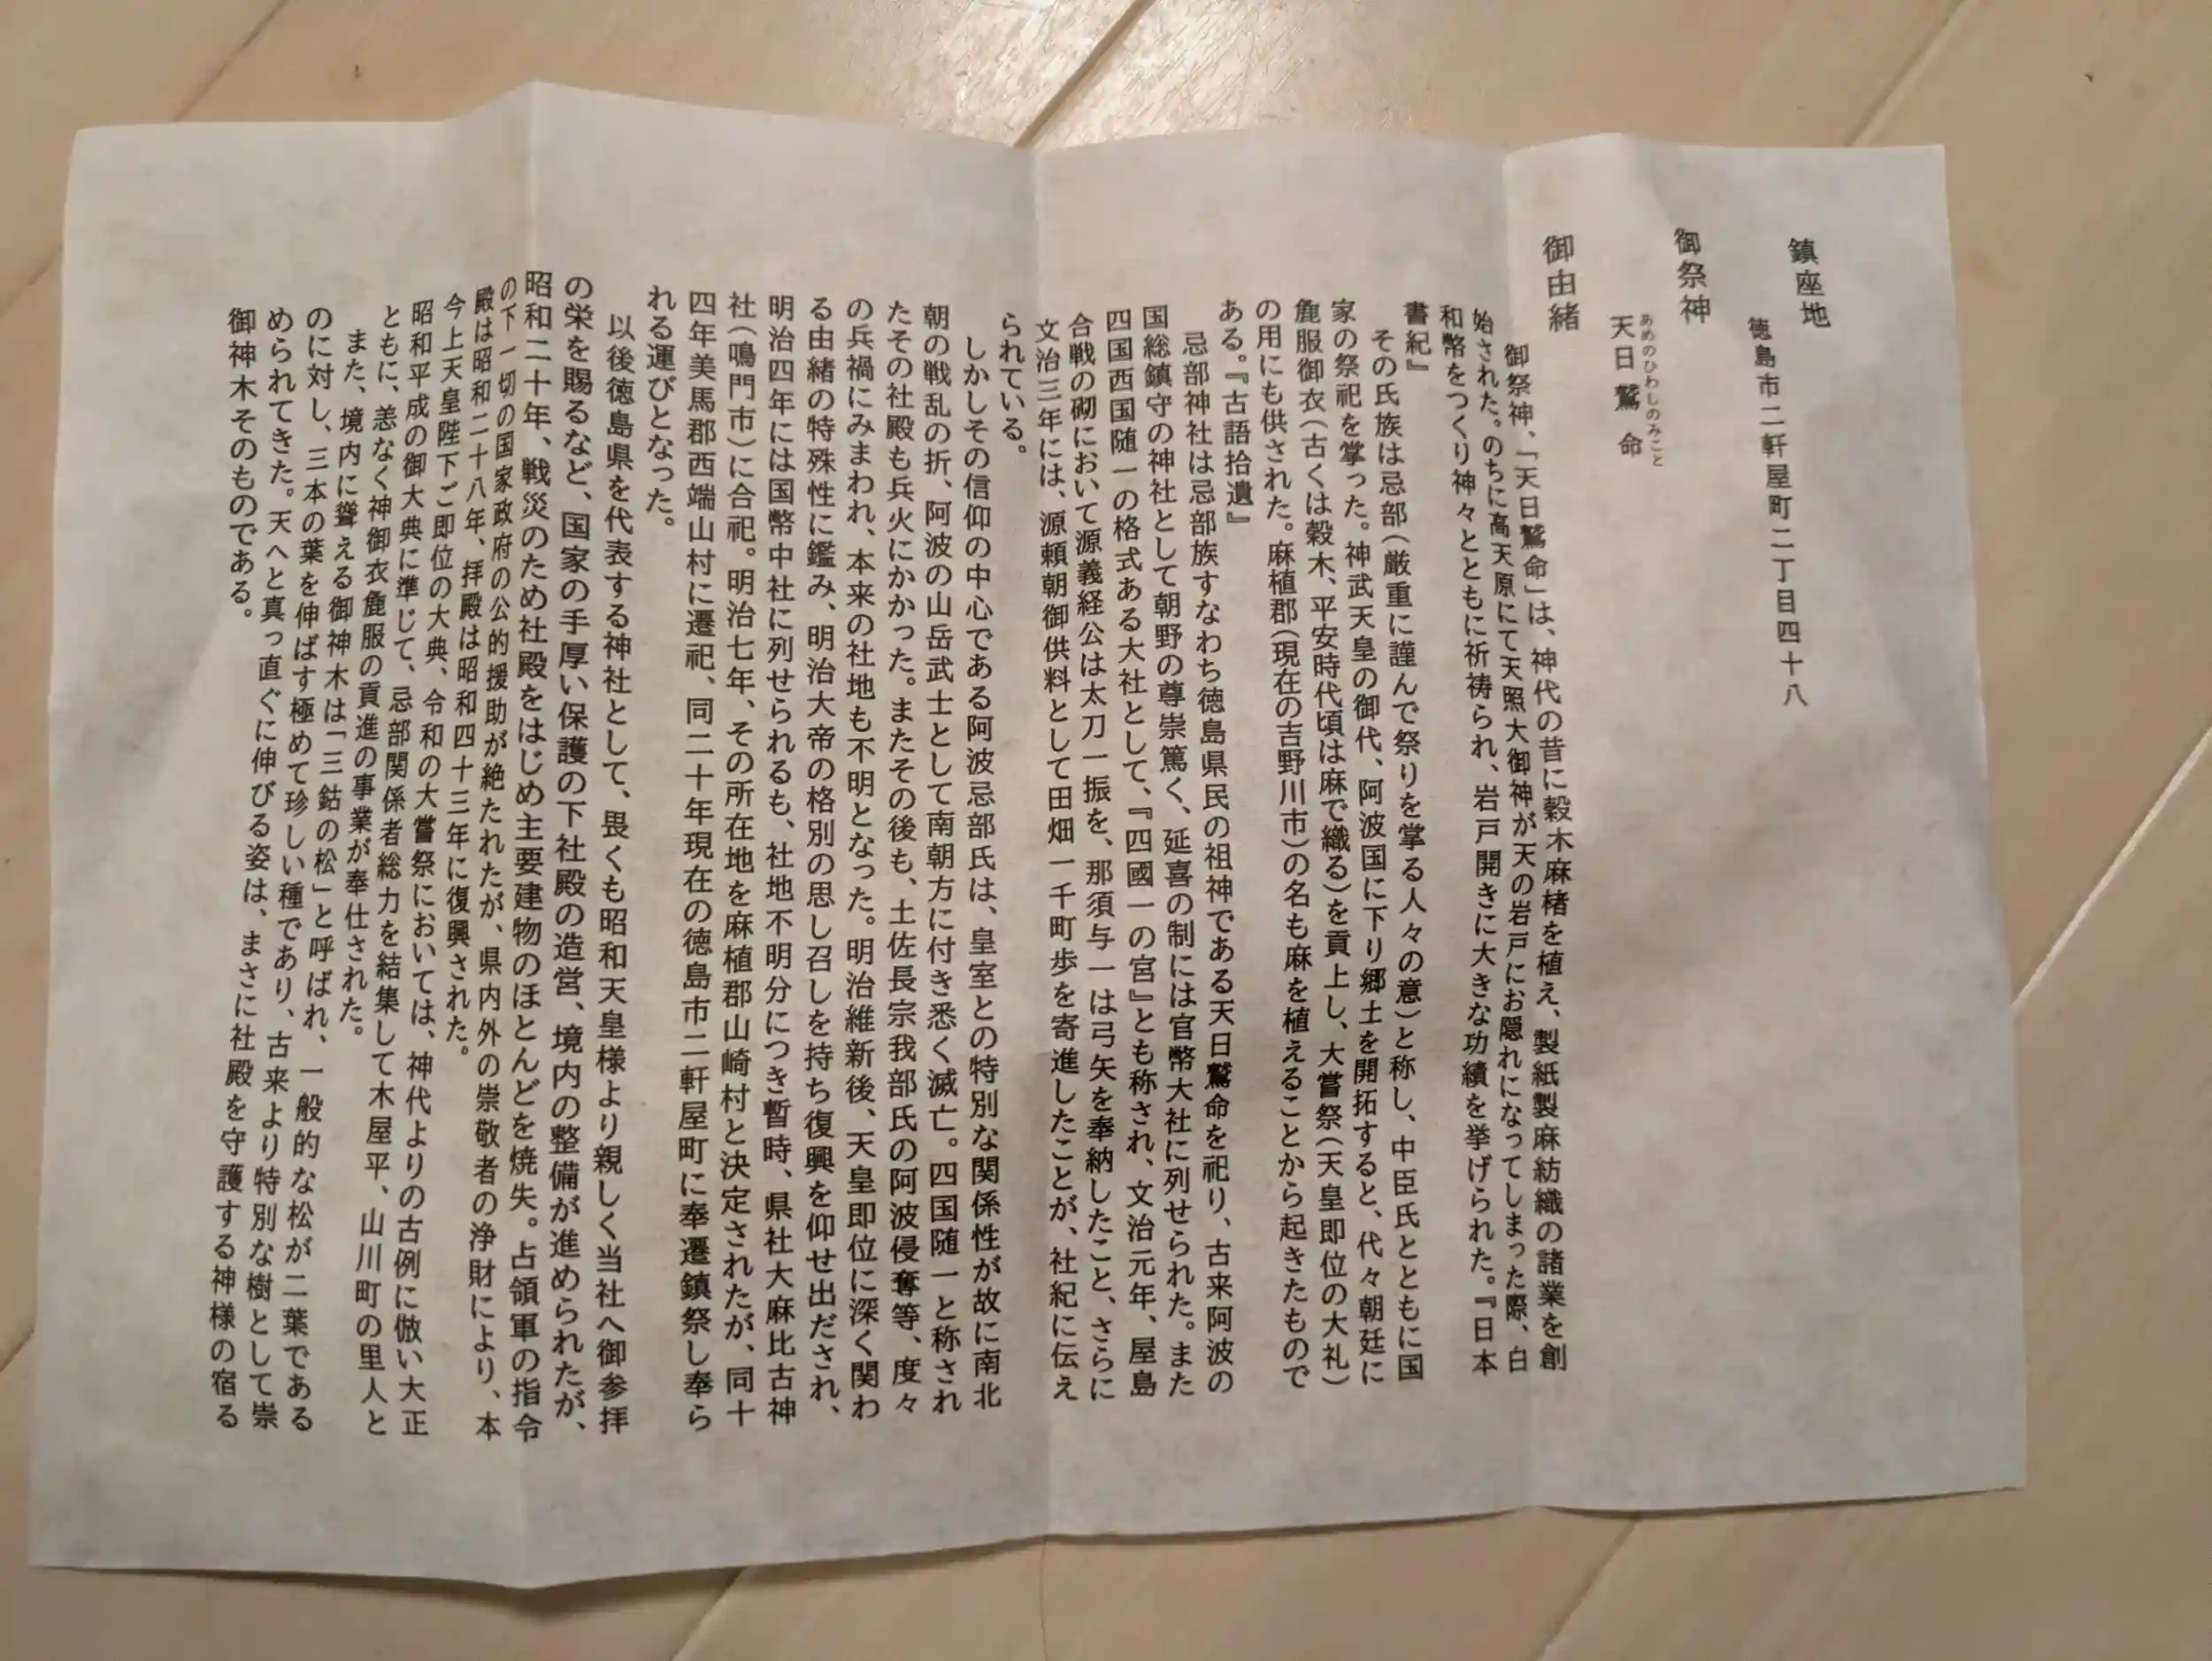 鎮座地
徳島市二軒屋町二丁目四十八
御祭神
あめのひわしのみこと
天日鷲命
御由緒
御祭神、「天日鷲命」は、神代の昔に穀木麻楮を植え、製紙製麻紡織の諸業を創
始された。のちに高天原にて天照大御神が天の岩戸にお隠れになってしまった際、白
和幣をつくり神々とともに祈祷られ、岩戸開きに大きな功績を挙げられた。『日本
書紀』
その氏族は忌部（厳重に謹んで祭りを掌る人々の意）と称し、中臣氏とともに国
家の祭祀を掌った。神武天皇の御代、阿波国に下り郷土を開拓すると、代々朝廷に
麁服御衣（古くは穀木、平安時代頃は麻で織る）を貢上し、大嘗祭（天皇即位の大礼）
の用にも供された。麻植郡（現在の吉野川市）の名も麻を植えることから起きたもので
ある。『古語拾遺』
忌部神社は忌部族すなわち徳島県民の祖神である天日鷲命を祀り、古来阿波の
国総鎮守の神社として朝野の尊崇篤く、延喜の制には官幣大社に列せられた。また
四国西国随一の格式ある大社として、『四國一の宮』とも称され、文治元年、屋島
合戦の砌において源義経公は太刀一振を、那須与一は弓矢を奉納したこと、さらに
文治三年には、源頼朝御供料として田畑一千町歩を寄進したことが、社紀に伝え
られている。
しかしその信仰の中心である阿波忌部氏は、皇室との特別な関係性が故に南北
朝の戦乱の折、阿波の山岳武士として南朝方に付き悉く滅亡。四国随一と称され
たその社殿も兵火にかかった。またその後も、土佐長宗我部氏の阿波侵奪等、度々
の兵禍にみまわれ、本来の社地も不明となった。明治維新後、天皇即位に深く関わ
る由緒の特殊性に鑑み、明治大帝の格別の思し召しを持ち復興を仰せ出だされ、
明治四年には国幣中社に列せられるも、社地不明分につき暫時、県社大麻比古神
社（鳴門市）に合祀。明治七年、その所在地を麻植郡山崎村と決定されたが、同十
四年美馬郡西端山村に遷祀、同二十年現在の徳島市二軒屋町に奉遷鎮祭し奉ら
れる運びとなった。
以後徳島県を代表する神社として、畏くも昭和天皇様より親しく当社へ御参拝
の栄を賜るなど、国家の手厚い保護の下社殿の造営、境内の整備が進められたが、
昭和二十年、戦災のため社殿をはじめ主要建物のほとんどを焼失。占領軍の指令
の下一切の国家政府の公的援助が絶たれたが、県内外の崇敬者の浄財により、本
殿は昭和二十八年、拝殿は昭和四十三年に復興された。
今上天皇陛下ご即位の大典、令和の大嘗祭においては、神代よりの古例に倣い大正
昭和平成の御大典に準じて、忌部関係者総力を結集して木屋平、山川町の里人と
ともに、恙なく神御衣麁服の貢進の事業が奉仕された。
また、境内に聳える御神木は「三鈷の松」と呼ばれ、一般的な松が二葉である
のに対し、三本の葉を伸ばす極めて珍しい種であり、古来より特別な樹として崇
められてきた。天へと真っ直ぐに伸びる姿は、まさに社殿を守護する神様の宿る
御神木そのものである。